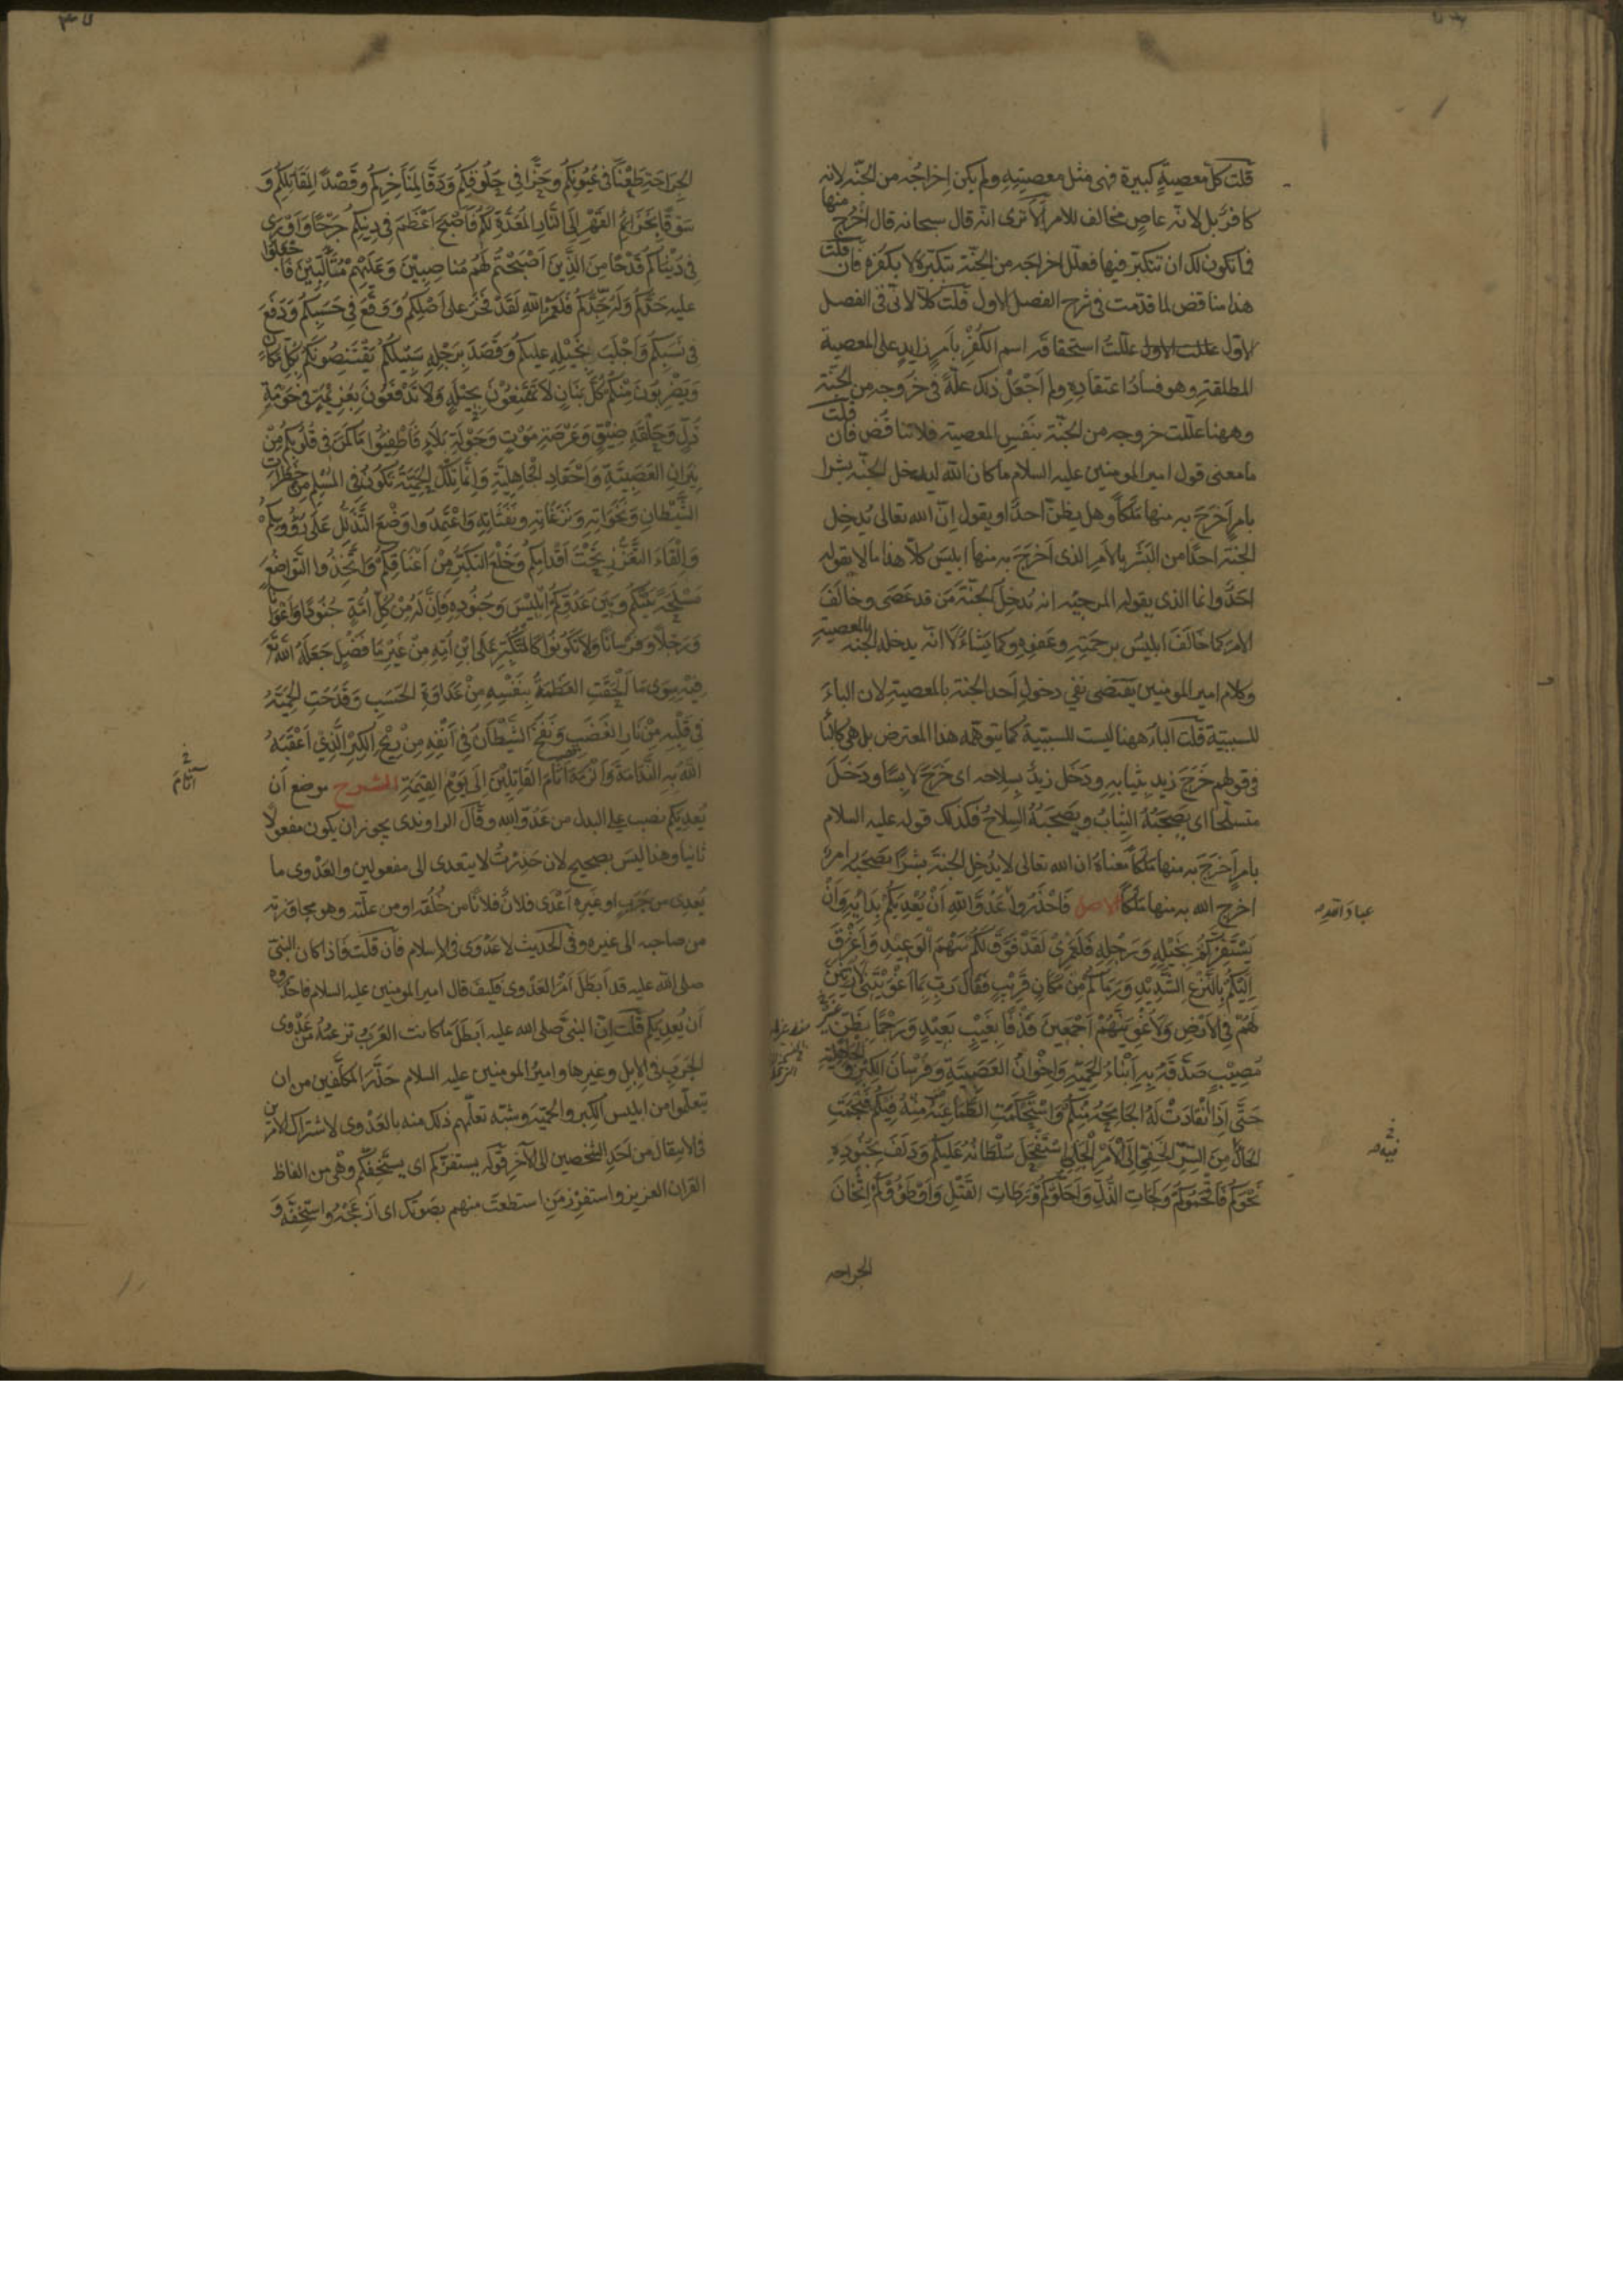 قلت كلّ معصيةٍ كبيرة فهى مثل معصيتِهِ ولم يكن اِخراجُه من الجنّه لانه
كافرٌ بل لانّه عاصٍ مخالف للامر اَلا ترى انّه قال سبحانه قال اُخْرج منها
فما تكون لك ان تتكبّر فيها فعلّل اخراجه من الجنّة بتكبّره لا بكفره فان قلت
هذا مناقض لما قدّمت فى شرح الفصل الاول قلت كلّا لانّى فى الفصل
الاول علّلتُ استحقاقَه اسم الكُفْرِ بِاَمرٍ زايدٍ على المعصية
المطلقةِ وهو فسادُ اعتقادِهِ ولم اَجْعَلْ ذلك علّةً فى خروجه من الجنّة
وههنا علّلت خروجه من الجنّة بنَفسِ المعصية فلا تناقُض فان قلت
ما معنى قول امير المومنين عليه السلام ما كان الله ليدخل الجنّة بشرا
بامرٍ اَخرَجَ به منها مَلَكاً وهل يظنّ احدٌ او يقول اِنّ الله تعالى يُدخِل
الجنةَ احدًا من البَشَر بالاَمرِ الذى اَخرَجَ به منها ابليسَ كلّا هذا ما لا يقوله
احَدٌ وانما الذى يقوله المرجئه انه يُدخِل الجنّةَ مَن قد عَصَى وخالَفَ
الامرَ كما خالَفَ ابليسُ برحمَتِهِ وعَفوِهِ وكما يَشاءُ لا انّه يدخله الجنّه بالمعصيةِ
وكلام امير المومنين يقتضى نفى دخول اَحدٍ الجنة بالمعصيةِ لان الباءَ
للسببيّة قلت الباءُ ههنا ليست للسببيّة كما يتوهّمه هذا المعترض بل هى كالبا
فى قولهم خَرَجَ زيد بثيابِهِ ودَخَل زيدٌ بسِلاحه اى خَرَجَ لابسًا ودَخَلَ
متسلّحًا اى يَصحَبُهُ الثيابُ ويَصحَبُهُ السِلاحُ فكذلك قوله عليه السلام
بامرٍ اَخرَجَ به منها مَلَكًا معناهُ ان الله تعالى لا يُدخِل الجنةَ بشرًا يصحَبه امرٌ
اخرج الله به منها مَلَكًا الاصل فَاحْذَرُوا عَدُوَّ اللهِ اَنْ يُعْدِيَكُمْ بِدَائِهِ وَاَنْ
يَسْتَفِزَّكُمْ بِخَيْلِهِ وَرَجْلِهِ فَلَعَمْرِىْ لَقَدْ فَوَّقَ لَكُمْ سَهْمَ الْوَعِيْدِ وَاَغْرَقَ
اِلَيْكُمْ بِالنَّزْعِ الشَّدِيْدِ وَرَمَاكُمْ مِنْ مَكَانٍ قَرِيْبٍ فَقَالَ رَبِّ بِمَا اَغْوَيْتَنِىْ لَاُزَيِّنَنَّ
لَهُمْ فِى الْاَرْضِ وَلَاُغْوِيَنَّهُمْ اَجْمَعِينَ قَذْفًا بِغَيْبٍ بَعِيْدٍ وَرَجْمًا بِظَنٍّ غَيْرِ
مُصِيْبٍ صَدَّقَهُ بِهِ اَبْنَاءُ الحَمِيَّةِ وَاِخْوَانُ العَصَبِيَّةِ وَفُرْسَانُ الكِبْرِ وَالجَاهِلِيَّةِ
حَتَّى اِذَا انْقَادَتْ لَهُ الجَامِحَةُ مِنْكُمْ وَاسْتَحْكَمَتِ الطَّمَاعِيَةُ مِنْهُ فِيْكُمْ فَنَجَمَتِ
الحَالُ مِنَ السِّرِّ الخَفِىِّ اِلَى الْاَمْرِ الْجَلِىِّ اسْتَفْحَلَ سُلْطَانُهُ عَلَيْكُمْ وَدَلَفَ بِجُنُودِهِ
نَحْوَكُمْ فَاَقْحَمُوكُمْ وَلَجَاتِ الذُّلِّ وَاَحَلُّوْكُمْ وَرَطَاتِ القَتْلِ وَاَوْطَؤُوْكُمْ اِثْخَانَ
الجراحه
عباد الله
فيه
الجِرَاحَةِ طَعْنًا فى عُيُونِكُمْ وحَزًّا فى حُلُوقِكُمْ وَدَقًّا لِمَنَاخِرِكُمْ وقَصْدًا لِمَقَاتِلِكُمْ وَ
سَوْقًا بِخَزَائِمِ القَهْرِ اِلَى النَّارِ المُعَدَّةِ لَكُمْ فَاَصْبَحَ اَعْظَمَ فِى دِينِكُمْ جَرْحًا وَاَوْرَى
فِى دُنْيَاكُمْ قَدْحًا مِنَ الَّذِينَ اَصْبَحْتُمْ لَهُمْ مُنَاصِبِيْنَ وَعَلَيْهِمْ مُتَاَلِّبِيْنَ فَاجْعَلُوا
عليه حَدَّكُمْ وَلَهُ جِدَّكُمْ فَلَعَمْرُ اللهِ لَقَدْ فَخَرَ على اَصْلِكُمْ وَوَقَعَ فِى حَسَبِكُمْ وَدَفَعَ
فى نَسَبِكُمْ وَاَجْلَبَ بِخَيْلِهِ عليكُمْ وَقَصَدَ بِرَجْلِهِ سَبِيْلَكُمْ يَقْتَنِصُونَكُمْ بِكُلِّ مَكَانٍ
وَيَضْرِبُوْنَ مِنْكُمْ كُلَّ بَنَانٍ لَا تَمْتَنِعُوْنَ بِحِيْلَةٍ وَلَا تَدْفَعُوْنَ بِعَزِيْمَةٍ فى حَوْمَةِ
ذُلٍّ وَحَلْقَةِ ضِيْقٍ وَعَرْصَةِ مَوْتٍ وَجَوْلَةِ بَلَاءٍ فَاَطْفِئُوا مَا كَمَنَ فى قُلُوبِكُمْ مِنْ
نِيْرَانِ العَصَبِيَّةِ وَاَحْقَادِ الْجَاهِلِيَّةِ وَاِنَّمَا تِلْكَ الحَمِيَّةُ تَكُونُ فِى المُسْلِمِ مِنْ خَطَرَاتِ
الشَّيْطَانِ وَنَخَوَاتِهِ وَنَزَغَاتِهِ وَنَفَثَاتِهِ وَاعْتَمِدُوا وَضْعَ التَّذَلُّلِ عَلَى رُؤُوسِكُمْ
وَاِلْقَاءَ التَّعَزُّزِ تَحْتَ اَقْدَامِكُمْ وَخَلْعَ التَّكَبُّرِ مِنْ اَعْنَاقِكُمْ وَاتَّخِذُوا التَّوَاضُعَ
مَسْلَحَةً بَيْنَكُمْ وَبَيْنَ عَدُوِّكُمْ اِبْلِيْسَ وَجُنُودِهِ فَاِنَّ لَهُ مِنْ كُلِّ اُمَّةٍ جُنُودًا وَاَعْوَانًا
وَرَجْلًا وَفُرْسَانًا وَلَا تَكُونُوا كَالْمُتَكَبِّرِ عَلَى ابْنِ اُمِّهِ مِنْ غَيْرِ مَا فَضْلٍ جَعَلَهُ اللهُ
فِيْهِ سِوَى مَا اَلْحَقَتِ العَظَمَةُ بِنَفْسِهِ مِنْ عَدَاوَةِ الحَسَبِ وَقَدَحَتِ الحَمِيَّةُ
فِى قَلْبِهِ مِنْ نَارِ الغَضَبِ وَنَفَخَ الشَّيْطَانُ فِى اَنْفِهِ مِنْ رِيْحِ الكِبْرِ الَّذِى اَعْقَبَهُ
اللهُ بِهِ النَّدَامَةَ وَاَلْزَمَهُ آثَامَ القَاتِلِيْنَ اِلَى يَوْمِ القِيٰمَةِ الشرح موضع اَن
يُعدِيَكم نصب على البدل من عَدُوّ الله وقالَ الراوندى يجوز ان يكون مفعولا
ثانيا وهذا ليس بصحيح لان حَذِرْتُ لا يتعدى الى مفعولين والعَدْوى ما
يُعدِى من جَرَبٍ او غيرِه اَعْدَى فلانٌ فلانًا من خُلُقه او من علّته وهو مجاوزته
من صاحبه الى غيره وفى الحديث لا عَدْوَى فى الاسلام فان قلت فاذا كان النبىّ
صلى الله عليه قد اَبطَلَ اَمرَ العَدْوى فكيفَ قال امير المومنين عليه السلام فاحذروه
اَن يُعدِيَكم قلت اِنّ النبىَّ صلى الله عليه اَبطَلَ ما كانت العَرَبُ تزعمُهُ مِن عَدْوى
الجرَبِ فى الابل وغيرها واميرُ المومنين عليه السلام حَذَّرَ المكلّفين من ان
يتعلّموا من ابليسَ الكِبر والحَمِيّةَ وشبّه تعلّمهم ذلك منه بالعَدْوى لاشتراك الامرين
فى الانتِقال من اَحَدِ الشخصين الى الآخر قوله يستفزّكم اى يستَخِفّكم وهى من الفاظ
القران العزيز واستفزِز مَنِ استطعتَ منهم بصَوتك اى اَزعَجْهُ واستَخِفَّه وَ
آثام